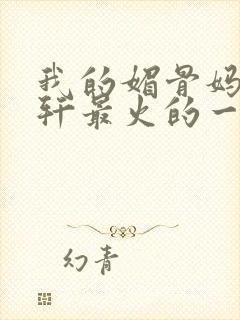 我的媚骨妈
轩最火的一
幻青